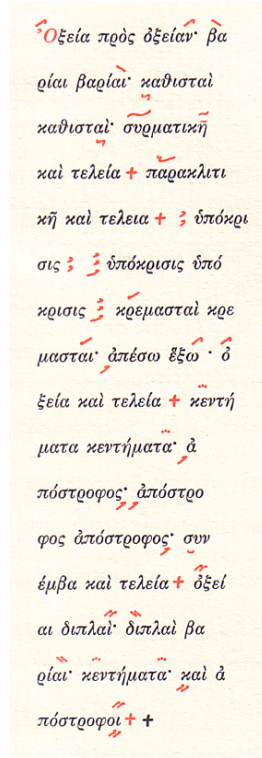 Ὀξεία πρὸς ὀξείαν· βα
ρίαι βαρίαι· καθισταὶ
καθισταὶ· συρματικῆ
καὶ τελεία + παρακλιτι
κῆ καὶ τελεια + ὑπόκρι
σις ὑπόκρισις ὑπό
κρισις κρεμασταὶ κρε
μασταί· ἀπέσω ἔξω · ὀ
ξεία καὶ τελεία + κεντή
ματα κεντήματα· ἀ
πόστροφος· ἀπόστρο
φος ἀπόστροφος· συν
έμβα καὶ τελεία + ὀξεί
αι διπλαὶ· διπλαὶ βα
ρίαι· κεντήματα· καὶ ἀ
πόστροφοι + +